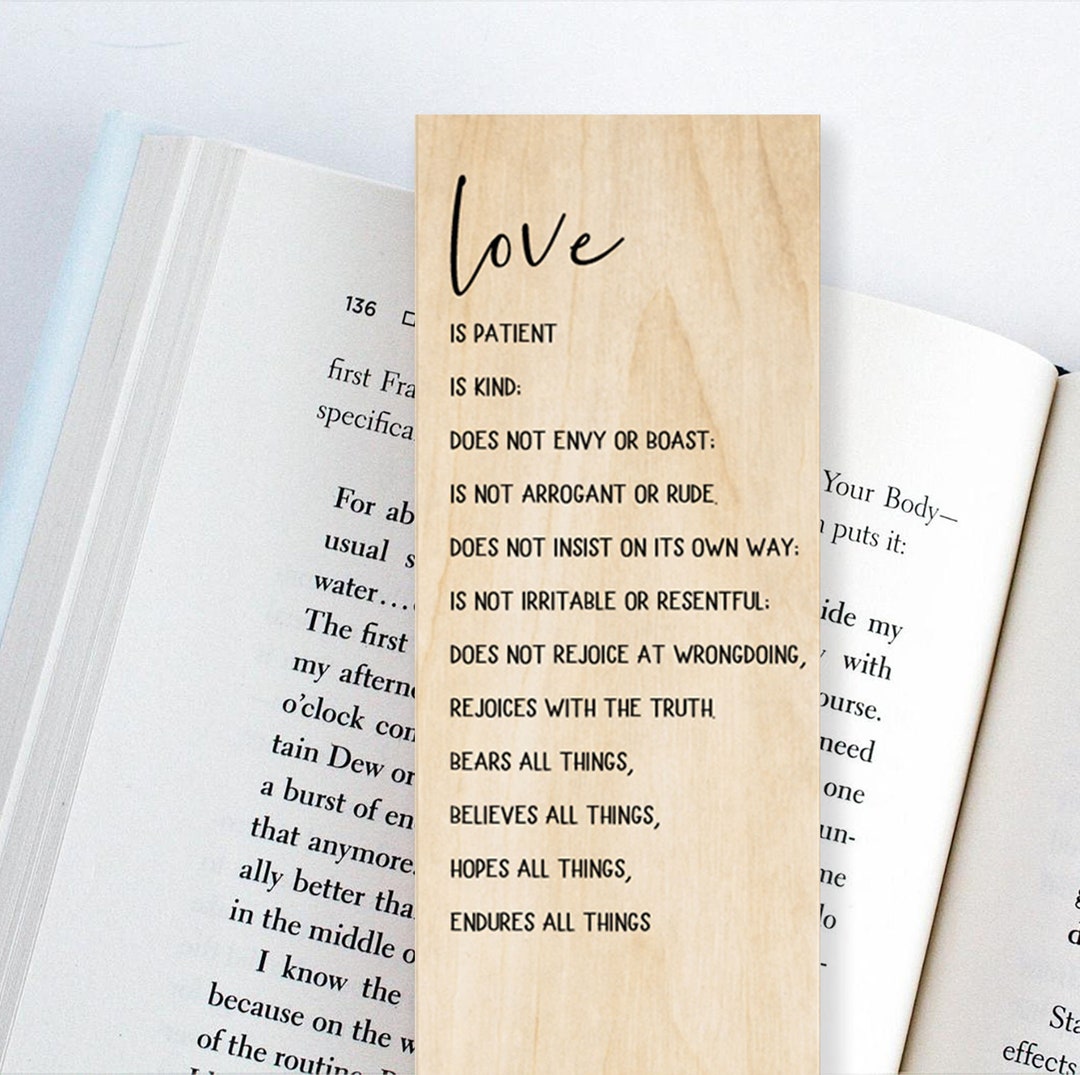 Love
IS PATIENT
IS KIND;
DOES NOT ENVY OR BOAST;
IS NOT ARROGANT OR RUDE.
DOES NOT INSIST ON ITS OWN WAY;
IS NOT IRRITABLE OR RESENTFUL;
DOES NOT REJOICE AT WRONGDOING,
REJOICES WITH THE TRUTH.
BEARS ALL THINGS,
BELIEVES ALL THINGS,
HOPES ALL THINGS,
ENDURES ALL THINGS
136
first
For
usual
water…
The first
my
o’clock
tain Dew or
a burst of
that anymore.
ally better
in the middle
I know the
because on the
of the
Your Body—
puts it:
my
with
need
one
effects